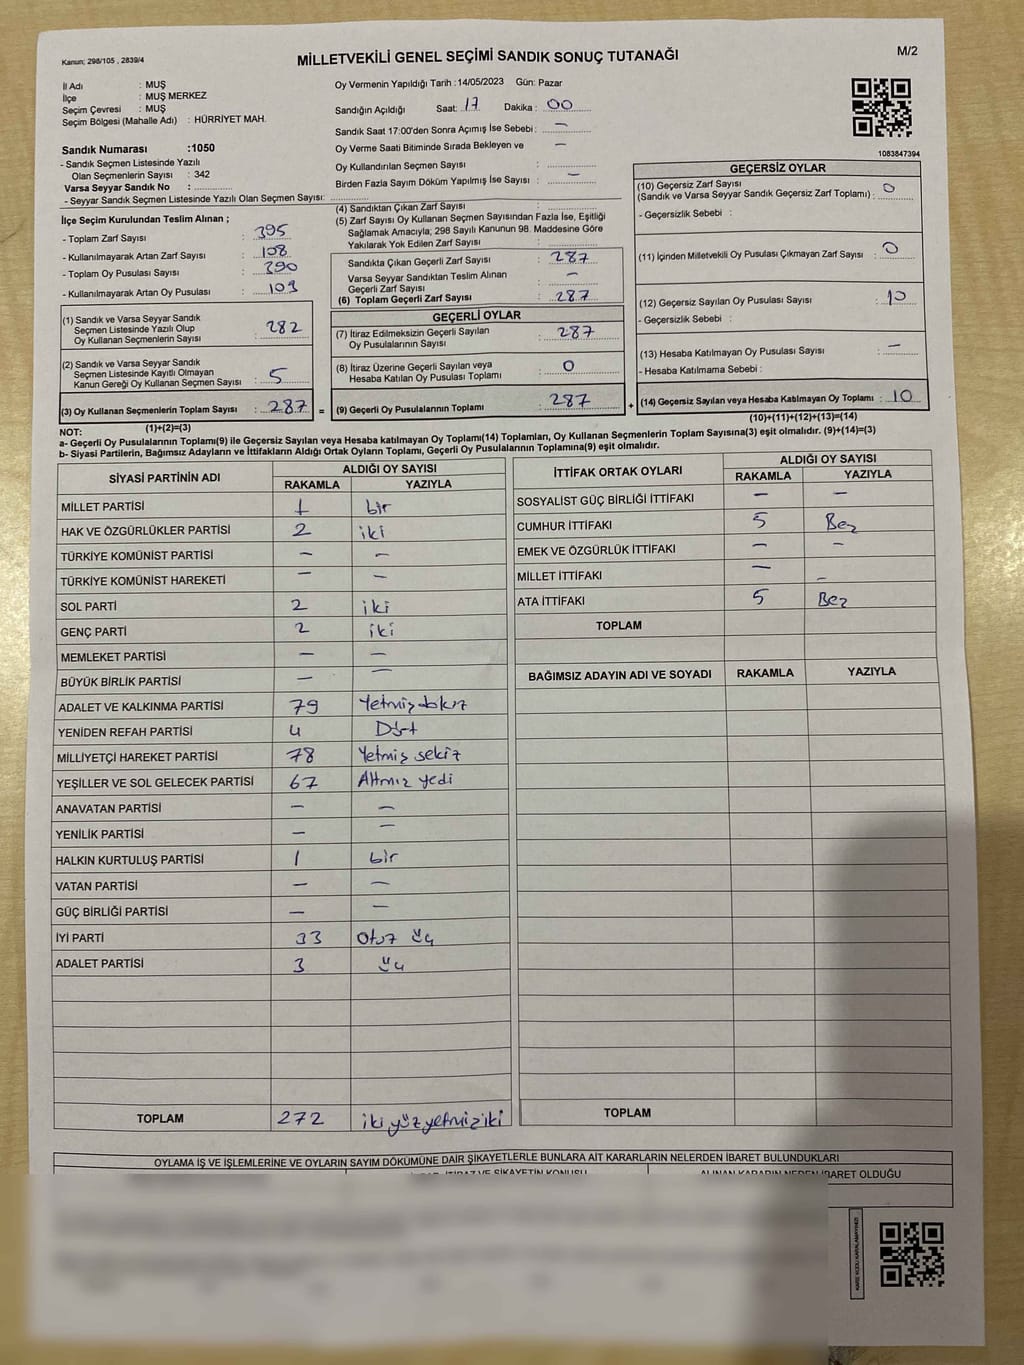 Kanun; 298/105 , 2839/4
MİLLETVEKİLİ GENEL SEÇİMİ SANDIK SONUÇ TUTANAĞI
M/2
İl Adı : MUŞ
İlçe : MUŞ MERKEZ
Seçim Çevresi : MUŞ
Seçim Bölgesi (Mahalle Adı) : HÜRRİYET MAH.
Sandık Numarası :1050
- Sandık Seçmen Listesinde Yazılı
Olan Seçmenlerin Sayısı : 342
Varsa Seyyar Sandık No :
- Seyyar Sandık Seçmen Listesinde Yazılı Olan Seçmen Sayısı:
Oy Vermenin Yapıldığı Tarih :14/05/2023 Gün: Pazar
Sandığın Açıldığı Saat: 17 Dakika : 00
Sandık Saat 17:00'den Sonra Açımış İse Sebebi : —
Oy Verme Saati Bitiminde Sırada Bekleyen ve —
Oy Kullandırılan Seçmen Sayısı :
Birden Fazla Sayım Döküm Yapılmış İse Sayısı : —
1083847394
İlçe Seçim Kurulundan Teslim Alınan ;
- Toplam Zarf Sayısı : 395
- Kullanılmayarak Artan Zarf Sayısı : 108
- Toplam Oy Pusulası Sayısı : 390
- Kullanılmayarak Artan Oy Pusulası : 103
(1) Sandık ve Varsa Seyyar Sandık
Seçmen Listesinde Yazılı Olup
Oy Kullanan Seçmenlerin Sayısı : 282
(2) Sandık ve Varsa Seyyar Sandık
Seçmen Listesinde Kayıtlı Olmayan
Kanun Gereği Oy Kullanan Seçmen Sayısı : 5
(3) Oy Kullanan Seçmenlerin Toplam Sayısı : 287 =
(1)+(2)=(3)
(4) Sandıktan Çıkan Zarf Sayısı :
(5) Zarf Sayısı Oy Kullanan Seçmen Sayısından Fazla İse, Eşitliği
Sağlamak Amacıyla; 298 Sayılı Kanunun 98. Maddesine Göre
Yakılarak Yok Edilen Zarf Sayısı :
Sandıkta Çıkan Geçerli Zarf Sayısı : 287
Varsa Seyyar Sandıktan Teslim Alınan —
Geçerli Zarf Sayısı :
(6) Toplam Geçerli Zarf Sayısı : 287
GEÇERLİ OYLAR
(7) İtiraz Edilmeksizin Geçerli Sayılan
Oy Pusulalarının Sayısı : 287
(8) İtiraz Üzerine Geçerli Sayılan veya
Hesaba Katılan Oy Pusulası Toplamı : 0
(9) Geçerli Oy Pusulalarının Toplamı : 287 +
GEÇERSİZ OYLAR
(10) Geçersiz Zarf Sayısı
(Sandık ve Varsa Seyyar Sandık Geçersiz Zarf Toplamı) : 0
- Geçersizlik Sebebi :
(11) İçinden Milletvekili Oy Pusulası Çıkmayan Zarf Sayısı : 0
(12) Geçersiz Sayılan Oy Pusulası Sayısı : 10
- Geçersizlik Sebebi :
(13) Hesaba Katılmayan Oy Pusulası Sayısı : —
- Hesaba Katılmama Sebebi :
(14) Geçersiz Sayılan veya Hesaba Katılmayan Oy Toplamı : 10
(10)+(11)+(12)+(13)=(14)
NOT:
a- Geçerli Oy Pusulalarının Toplamı(9) ile Geçersiz Sayılan veya Hesaba katılmayan Oy Toplamı(14) Toplamları, Oy Kullanan Seçmenlerin Toplam Sayısına(3) eşit olmalıdır. (9)+(14)=(3)
b- Siyasi Partilerin, Bağımsız Adayların ve İttifakların Aldığı Ortak Oyların Toplamı, Geçerli Oy Pusulalarının Toplamına(9) eşit olmalıdır.
SİYASİ PARTİNİN ADI ALDIĞI OY SAYISI
RAKAMLA YAZIYLA
MİLLET PARTİSİ 1 bir
HAK VE ÖZGÜRLÜKLER PARTİSİ 2 iki
TÜRKİYE KOMÜNİST PARTİSİ — —
TÜRKİYE KOMÜNİST HAREKETİ — —
SOL PARTİ 2 iki
GENÇ PARTİ 2 iki
MEMLEKET PARTİSİ — —
BÜYÜK BİRLİK PARTİSİ — —
ADALET VE KALKINMA PARTİSİ 79
YENİDEN REFAH PARTİSİ 4 Dört
MİLLİYETÇİ HAREKET PARTİSİ 78 Yetmiş sekiz
YEŞİLLER VE SOL GELECEK PARTİSİ 67 Altmız yedi
ANAVATAN PARTİSİ — —
YENİLİK PARTİSİ — —
HALKIN KURTULUŞ PARTİSİ 1 bir
VATAN PARTİSİ — —
GÜÇ BİRLİĞİ PARTİSİ — —
İYİ PARTİ 33 Otuz üç
ADALET PARTİSİ 3 üç
TOPLAM 272 iki yüz yetmiz iki
İTTİFAK ORTAK OYLARI ALDIĞI OY SAYISI
RAKAMLA YAZIYLA
SOSYALİST GÜÇ BİRLİĞİ İTTİFAKI — —
CUMHUR İTTİFAKI 5 Bez
EMEK VE ÖZGÜRLÜK İTTİFAKI — —
MİLLET İTTİFAKI — —
ATA İTTİFAKI 5 Bez
TOPLAM
BAĞIMSIZ ADAYIN ADI VE SOYADI RAKAMLA YAZIYLA
TOPLAM
OYLAMA İŞ VE İŞLEMLERİNE VE OYLARIN SAYIM DÖKÜMÜNE DAİR ŞİKAYETLERLE BUNLARA AİT KARARLARIN NELERDEN İBARET BULUNDUKLARI
İTİRAZ VE ŞİKAYETİN KONUSU ALINAN KARARIN NEDEN İBARET OLDUĞU
KARE KODU KARALAMAYINIZ!